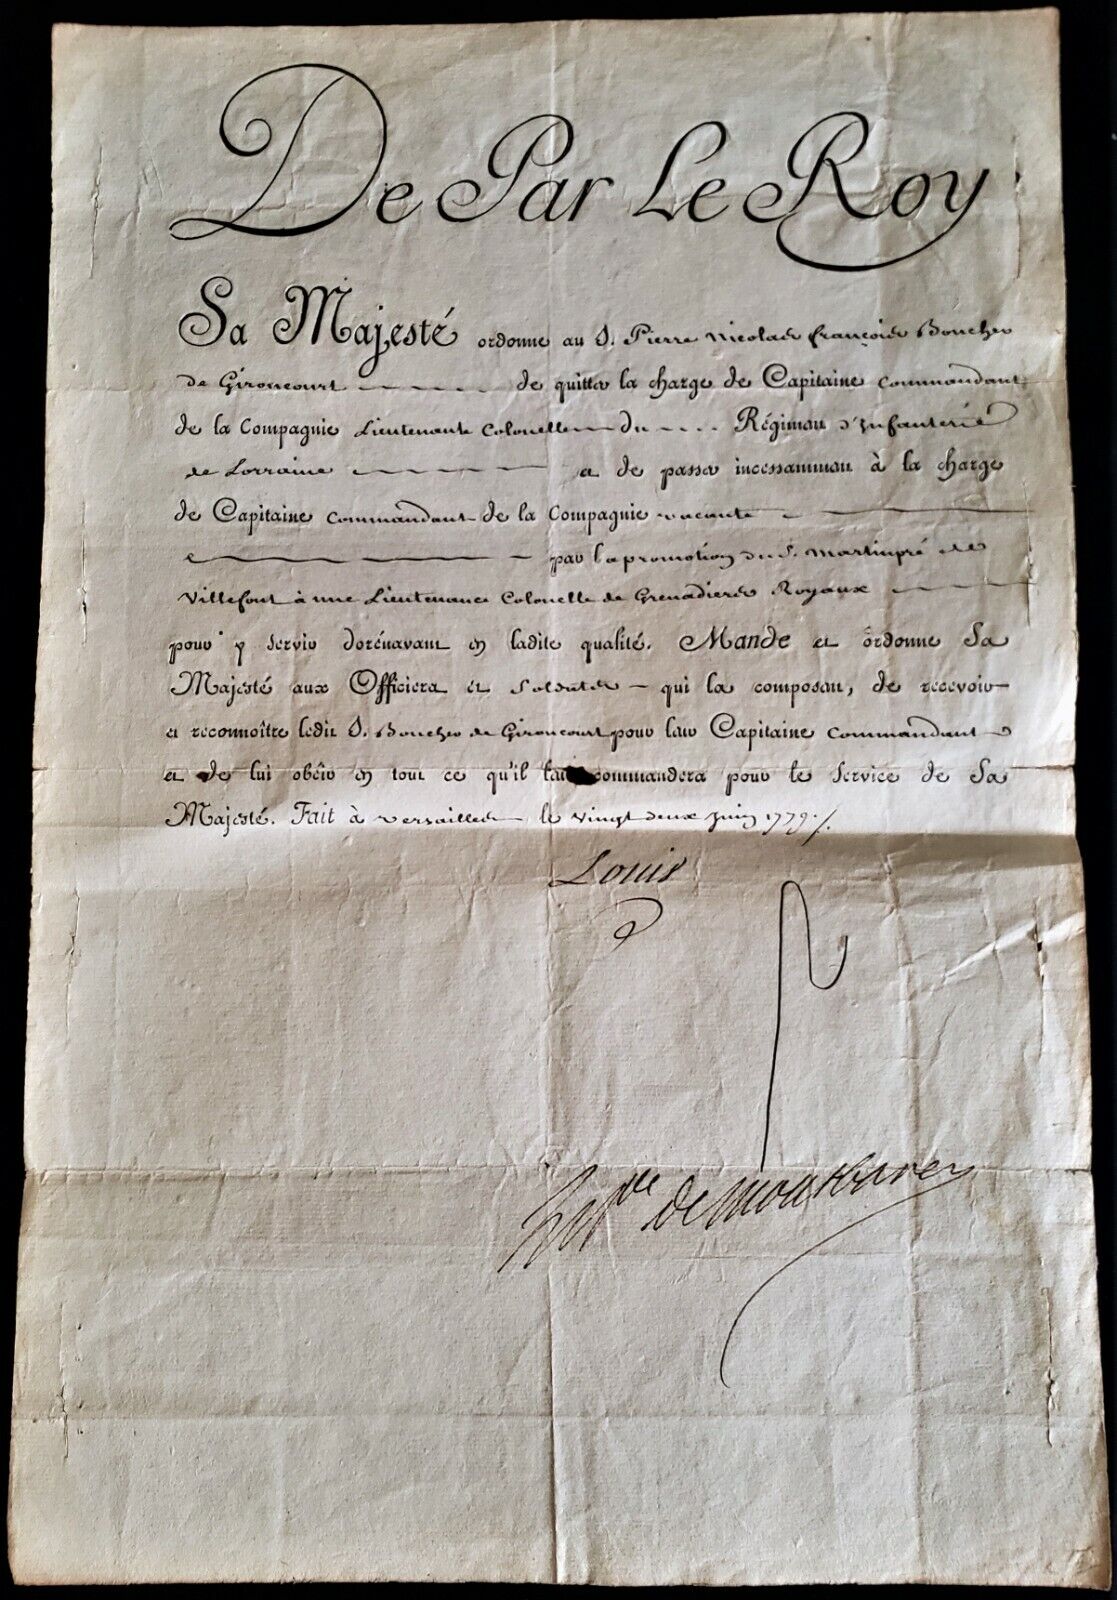 De Par Le Roy
Sa Majesté ordonne au S. Pierre Nicolas françois Boucher
de Gironcourt de quitter la charge de Capitaine Commandant
de la Compagnie Lieutenante Colonelle du Régiment d'Infanterie
de Lorraine et de passer incessamment à la charge
de Capitaine Commandant de la Compagnie vacante
par la promotion du S. Martinpré de
Villefont à une Lieutenance Colonelle de Grenadiers Royaux
pour y servir dorénavant en ladite qualité. Mande et ordonne Sa
Majesté aux Officiers et Soldats qui la composent, de recevoir
et reconnoître ledit S. Boucher de Gironcourt pour leur Capitaine Commandant
et de lui obéir en tout ce qu'il commandera pour le service de Sa
Majesté. Fait à Versailles le vingt deux Juin 1779./.
Louis
de Montbarey